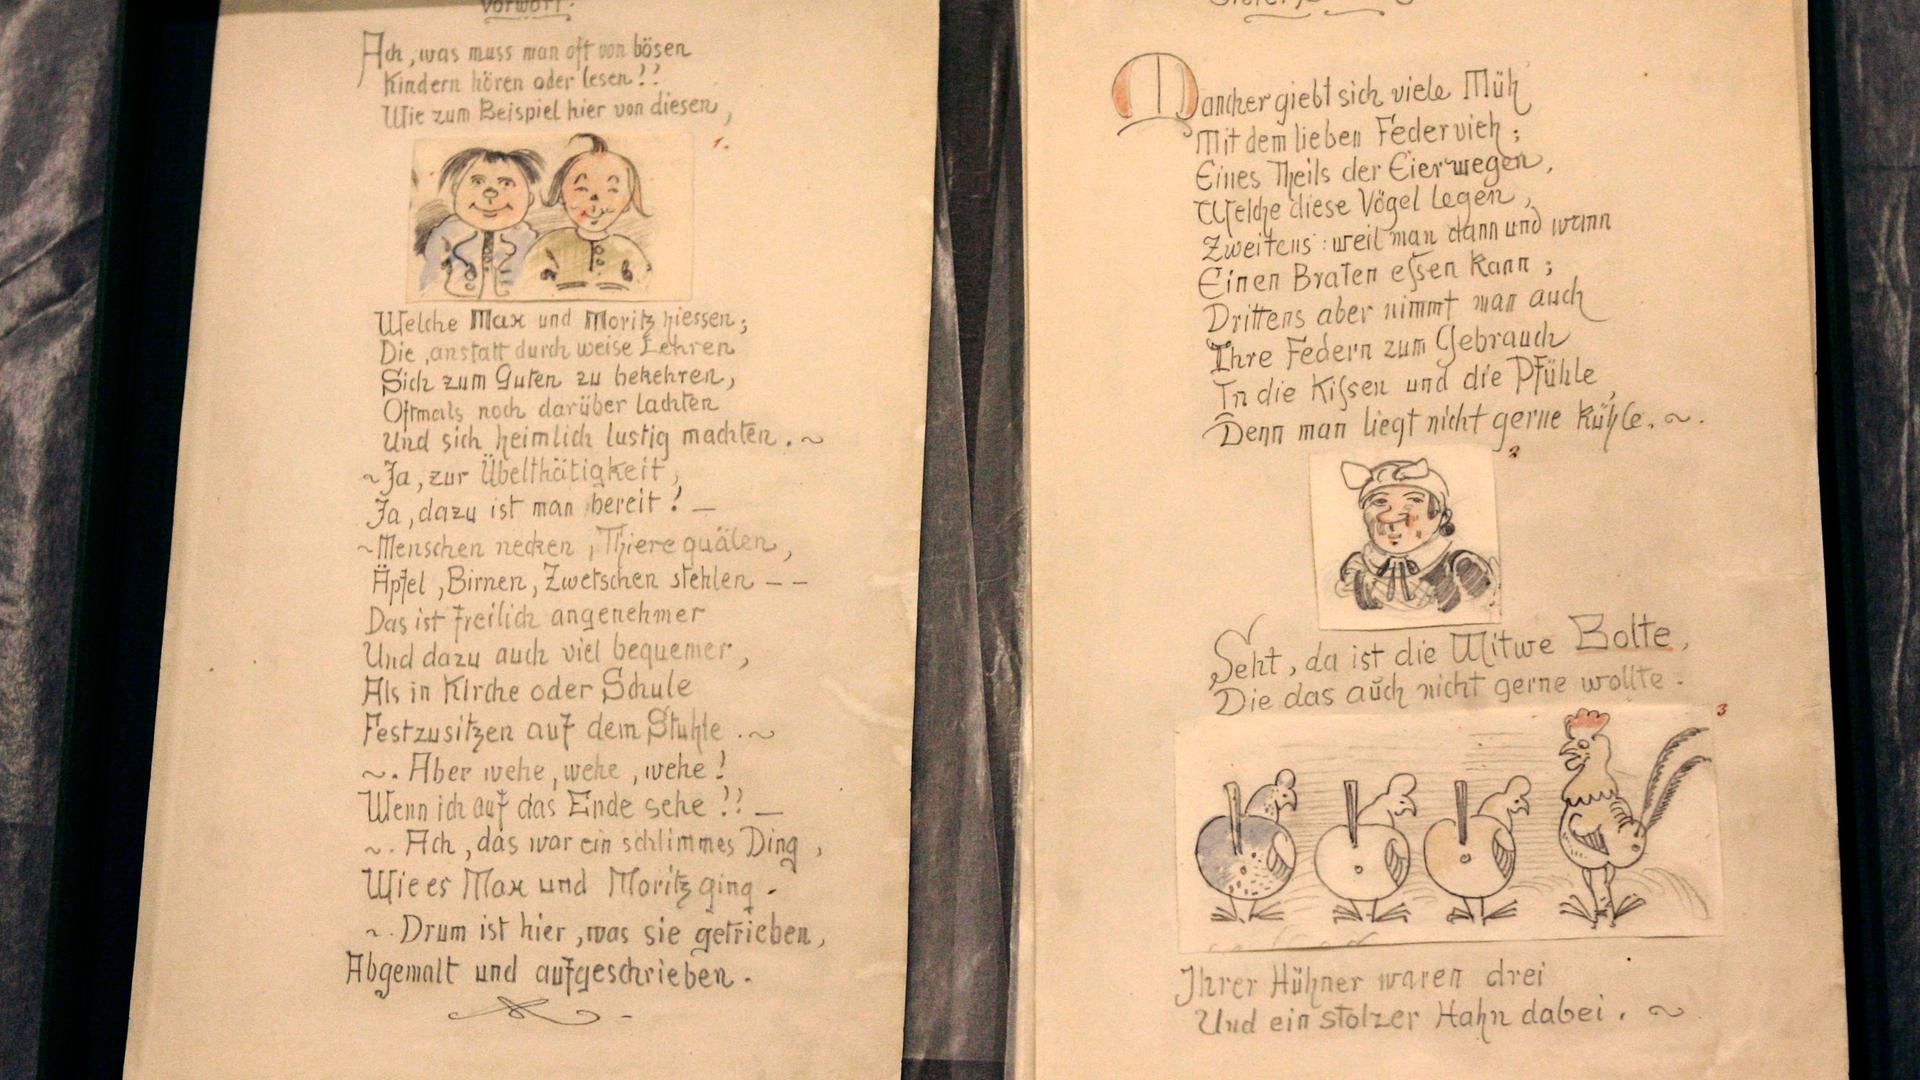 Vorwort.
Ach, was muss man oft von bösen
Kindern hören oder lesen!!
Wie zum Beispiel hier von diesen,
1.
Welche Max und Moritz hiessen;
Die, anstatt durch weise Lehren
Sich zum Guten zu bekehren,
Oftmals noch darüber lachten
Und sich heimlich lustig machten. ~
~ Ja, zur Übelthätigkeit,
Ja, dazu ist man bereit! —
~ Menschen necken, Thiere quälen,
Äpfel, Birnen, Zwetschen stehlen – –
Das ist freilich angenehmer
Und dazu auch viel bequemer,
Als in Kirche oder Schule
Festzusitzen auf dem Stuhle. ~
~. Aber wehe, wehe, wehe!
Wenn ich auf das Ende sehe!! —
~. Ach, das war ein schlimmes Ding,
Wie es Max und Moritz ging.
~. Drum ist hier, was sie getrieben,
Abgemalt und aufgeschrieben.
Mancher giebt sich viele Müh
Mit dem lieben Federvieh;
Eines Theils der Eier wegen,
Welche diese Vögel legen,
Zweitens: weil man dann und wann
Einen Braten essen kann;
Drittens aber nimmt man auch
Ihre Federn zum Gebrauch
In die Kissen und die Pfühle,
Denn man liegt nicht gerne kühle. ~.
2
Seht, da ist die Witwe Bolte,
Die das auch nicht gerne wollte.
3
Ihrer Hühner waren drei
Und ein stolzer Hahn dabei. ~